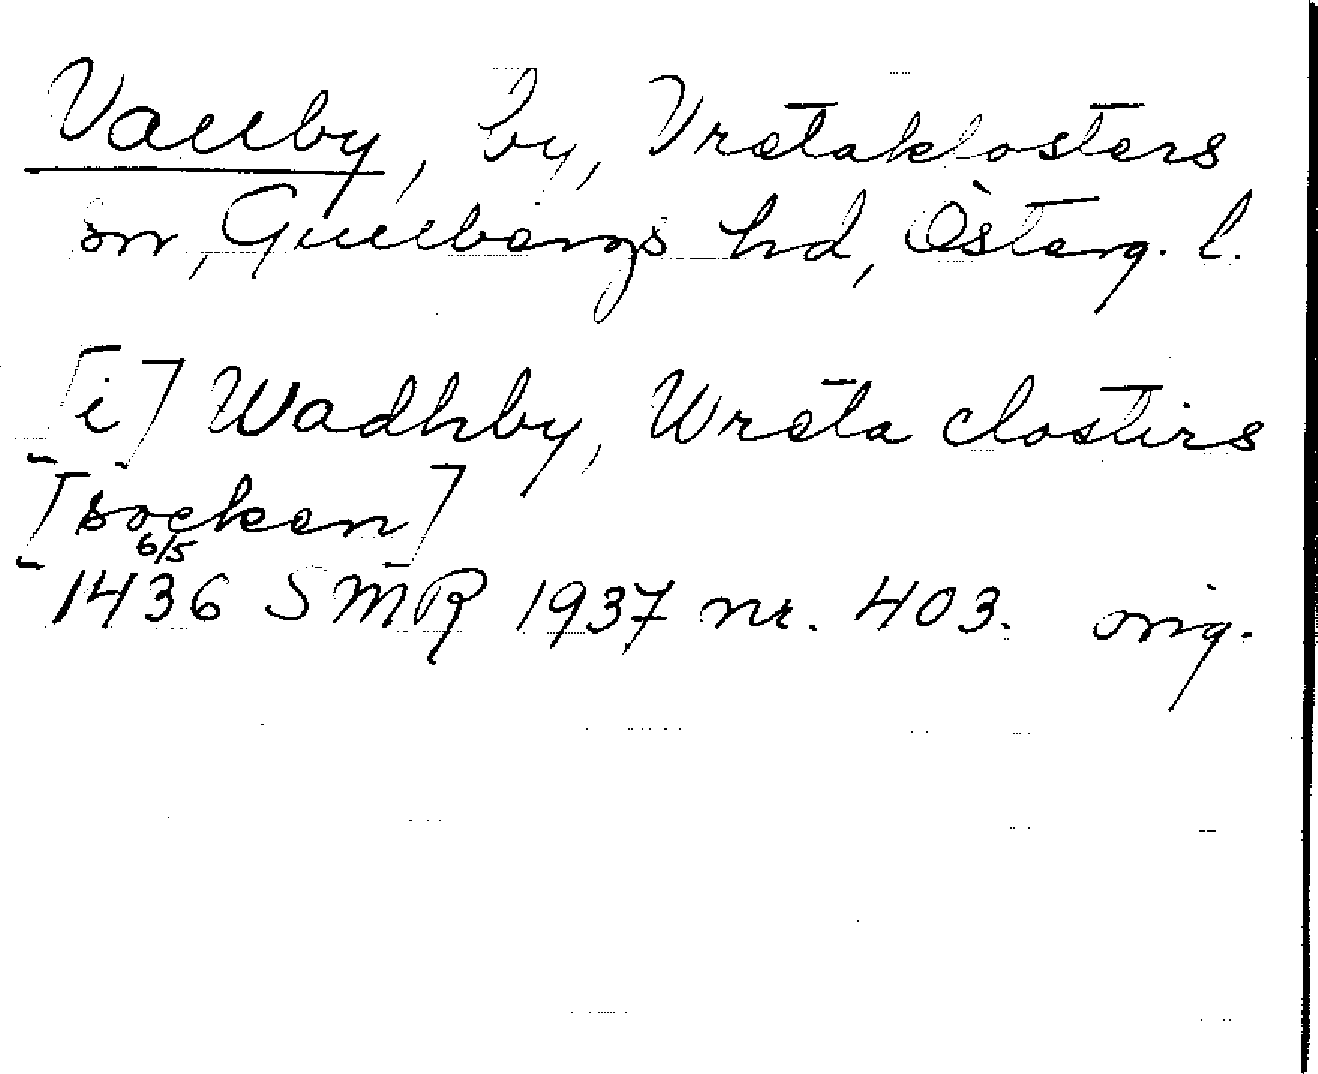 Vallby, by, Vretaklosters
sn, Gullbergs hd, Österg. l.
[i] Wadhby, Wreta closters
[socken]
6/5
1436 SMR 1937 nr. 403. orig.